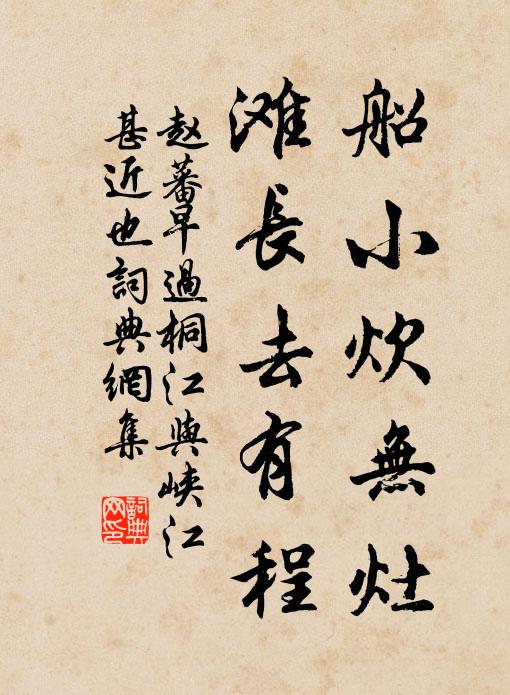 船小炊無灶
滩長去有程
赵蕃早過桐江與峡江
甚近也詞典網集
詞典网印